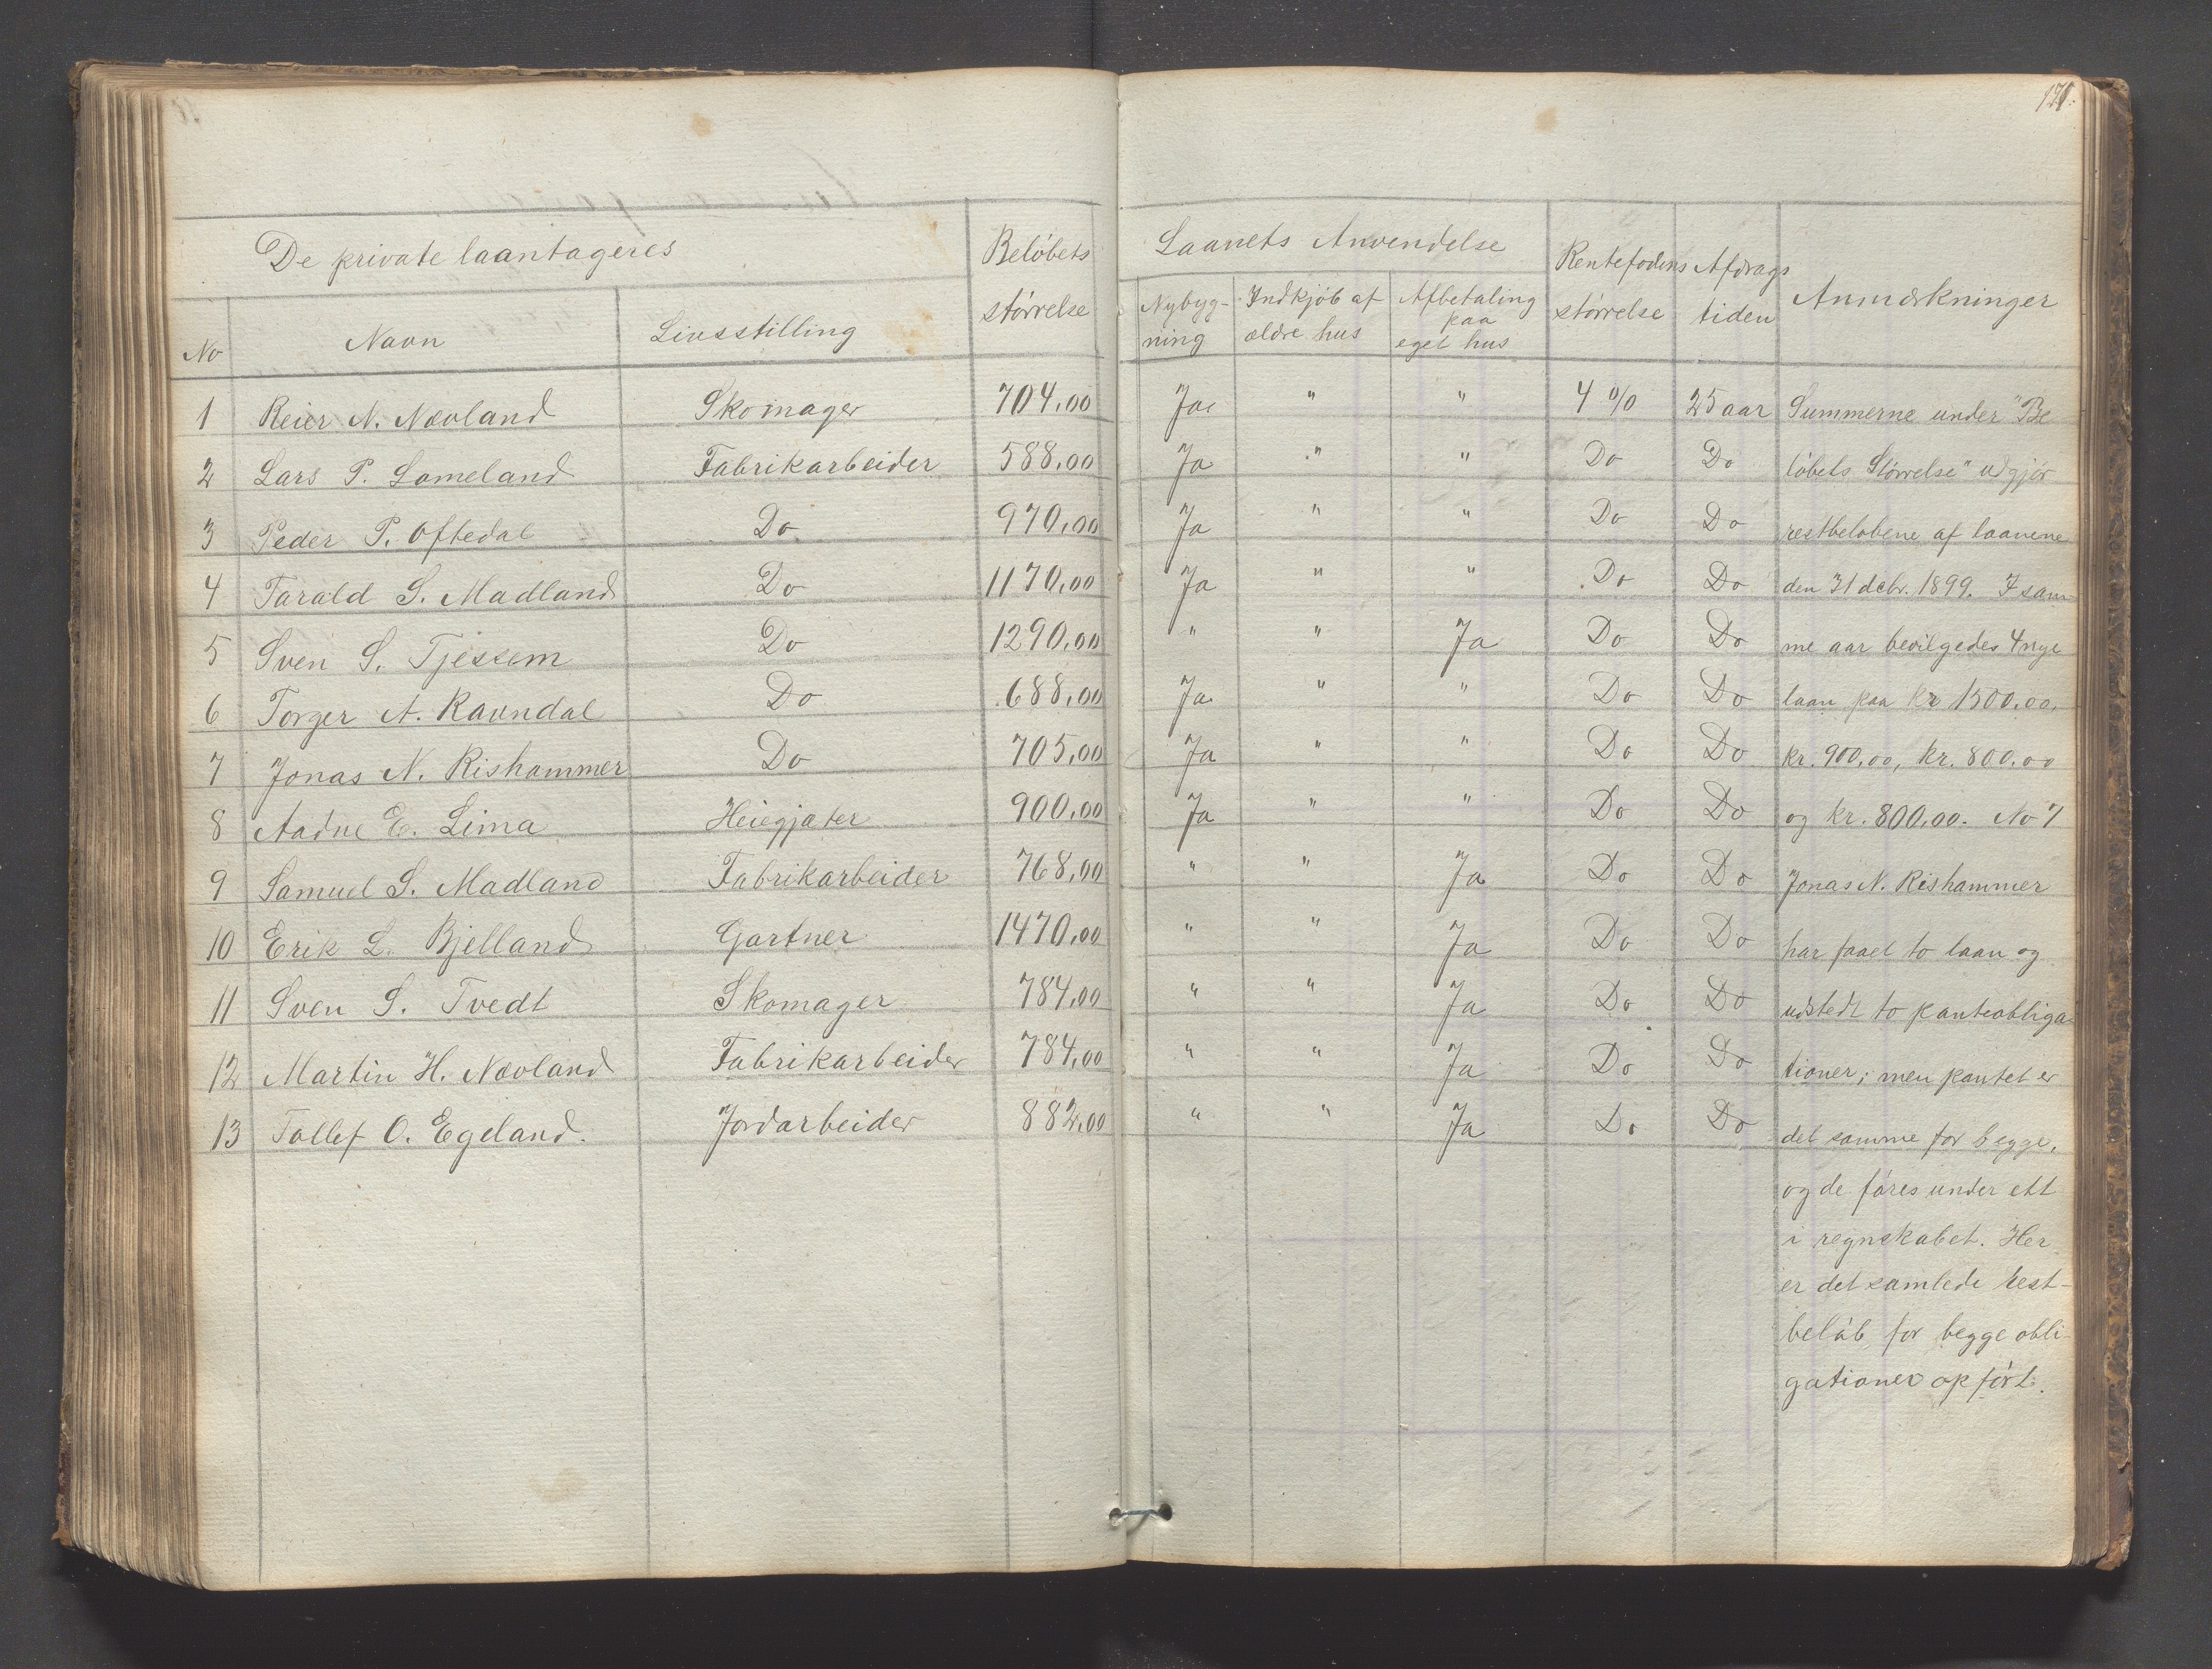 171.
De private laantageres
Beløbets størrelse
Laanets Anvendelse
Rentefodens størrelse
Afdrags tiden
Anmærkninger
No Navn Livsstilling
Nybyg-ning
Indkjøb af ældre hus
Afbetaling paa eget hus
1 Reier N. Nævland Skomager 704,00 Ja " " 4 % 25 aar Summerne under "Be
2 Lars P. Lomeland Fabrikarbeider 588,00 Ja " " Do Do løbets Størrelse" udgjør
3 Peder P. Oftedal Do 970,00 Ja " " Do Do restbeløbene af laanene
4 Tarald S. Madland Do 1170,00 Ja " " Do Do den 31 dcbr. 1899. I sam-
5 Sven S. Tjessem Do 1290,00 " " Ja Do Do me aar bevilgedes 4 nye
6 Torger A. Ravndal Do 688,00 Ja " " Do Do laan paa kr 1500,00,
7 Jonas N. Rishammer Do 705,00 Ja " " Do Do kr. 900,00, kr. 800,00
8 Aadne E. Lima Heiegjæter 900,00 Ja " " Do Do og kr. 800,00. No 7
9 Samuel S. Madland Fabrikarbeider 768,00 " " Ja Do Do Jonas N. Rishammer
10 Erik L. Bjelland Gartner 1470,00 " " Ja Do Do har faaet to laan og
11 Sven S. Tvedt Skomager 784,00 " " Ja Do Do udstedt to panteobliga
12 Martin H. Nævland Fabrikarbeider 784,00 " " Ja Do Do tioner; men pantet er
13 Tollef O. Egeland. Jordarbeider 882,00 " " Ja Do Do det samme for begge,
og de føres under ett
i regnskabet. Her
er det samlede rest-
beløb for begge obli-
gationer opført.